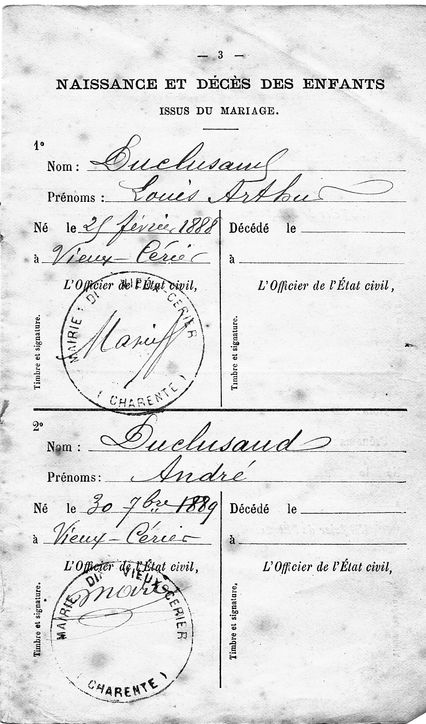 — 3 —
NAISSANCE ET DÉCÈS DES ENFANTS
ISSUS DU MARIAGE.
1°
Nom : Duclusaud
Prénoms : Louis Arthur
Né le 25 février 1888 Décédé le
à Vieux-Cérier à
L'Officier de l'État civil, L'Officier de l'État civil,
MAIRIE DE VIEUX-CERIER
(CHARENTE)
Timbre et signature. Timbre et signature.
2°
Nom : Duclusaud
Prénoms : André
Né le 30 7bre 1889 Décédé le
à Vieux-Cérier à
L'Officier de l'État civil, L'Officier de l'État civil,
MAIRIE DE VIEUX-CERIER
(CHARENTE)
Timbre et signature. Timbre et signature.